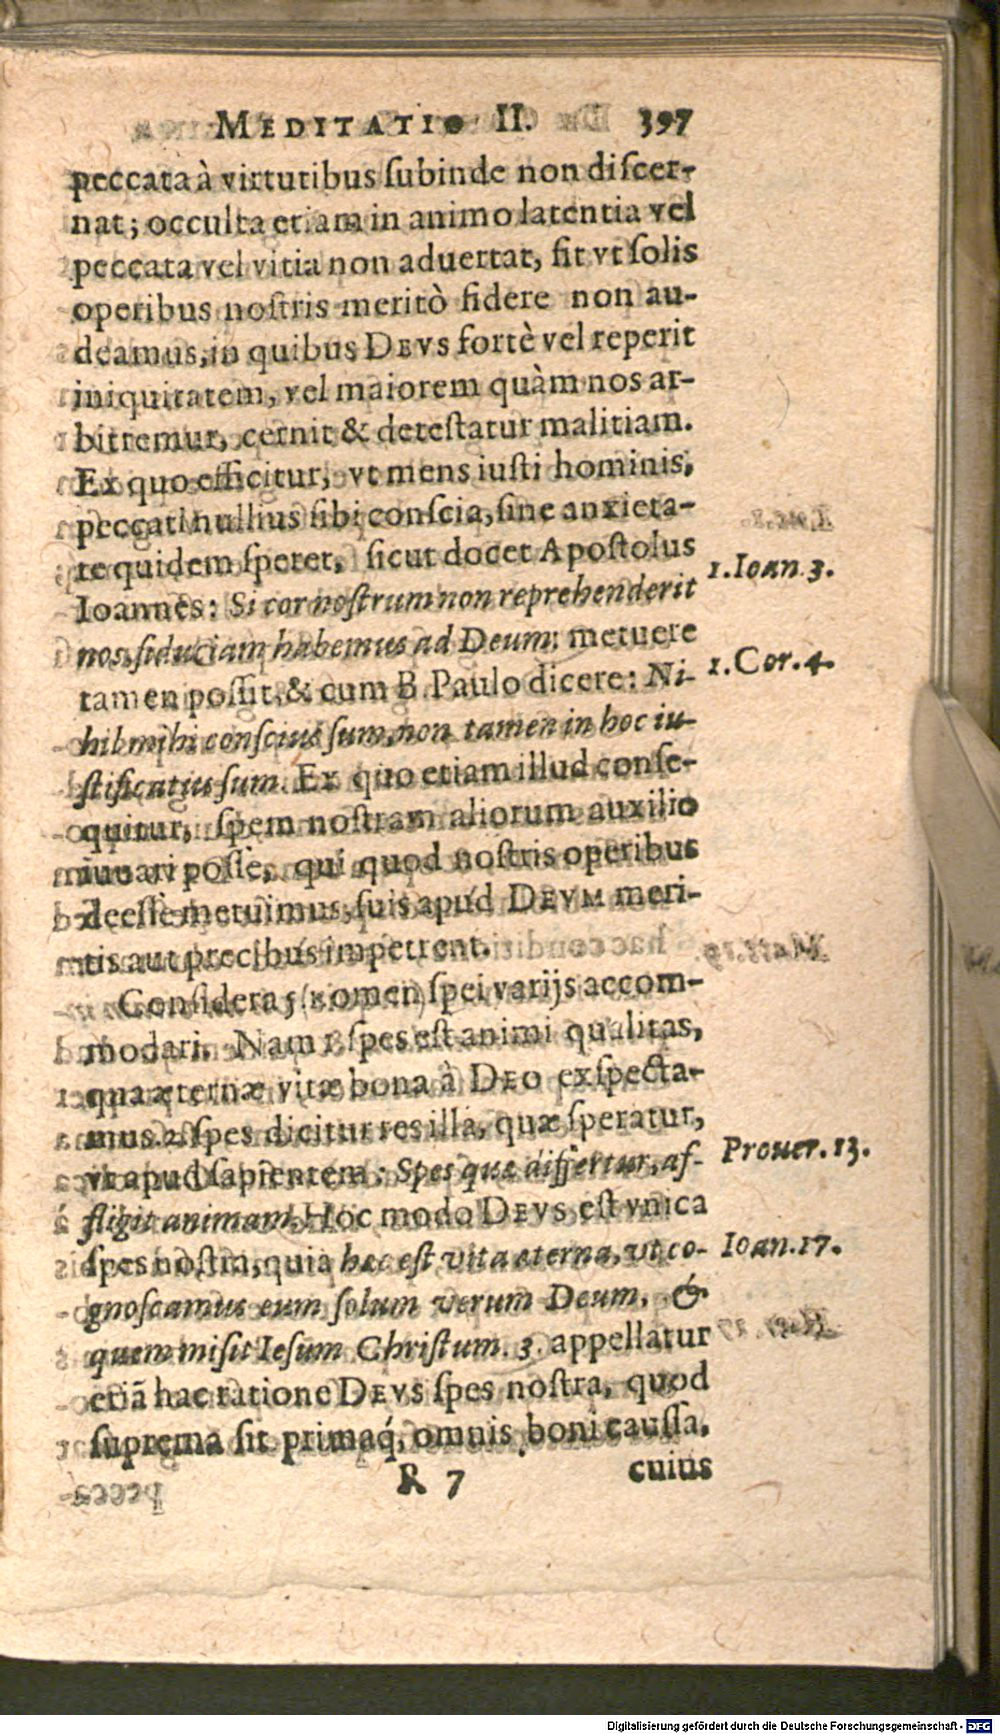 MEDITATIO II. 397
peccata à virtutibus ſubinde non diſcer-
nat; occulta etiam in animo latentia vel
peccata vel vitia non aduertat, fit vt ſolis
operibus noſtris meritò fidere non au-
deamus, in quibus DEVS fortè vel reperit
iniquitatem, vel maiorem quàm nos ar-
bitremur, cernit & deteſtatur malitiam.
Ex quo efficitur, vt mens iuſti hominis,
peccati nullius ſibi conſcia, ſine anxieta-
te quidem ſperet, ſicut docet Apoſtolus
1. Ioan. 3.
Ioannes: Si cor noſtrum non reprehenderit
nos, fiduciam habemus ad Deum: metuere
tamen poſſit, & cum B. Paulo dicere: Ni-
1. Cor. 4.
hil mihi conſcius ſum, non tamen in hoc iu-
ſtificatus ſum. Ex quo etiam illud conſe-
quitur, ſpem noſtram aliorum auxilio
iuuari poſſe, qui quod noſtris operibus
deeſſe metuimus, ſuis apud DEVM meri-
tis aut precibus impetrent.
Conſidera 5. nomen ſpei varijs accom-
modari. Nam 1. ſpes eſt animi qualitas,
qua æternæ vitæ bona à DEO exſpecta-
mus. 2. ſpes dicitur res illa, quæ ſperatur,
vt apud ſapientem: Spes quæ differtur, af-
Prouer. 13.
fligit animam. Hoc modo DEVS eſt vnica
ſpes noſtra, quia hæc eſt vita æterna, vt co-
Ioan. 17.
gnoſcamus eum ſolum verum Deum, &
quem miſit Ieſum Chriſtum. 3. appellatur
etiã hac ratione DEVS ſpes noſtra, quod
ſuprema ſit primaq́, omnis boni cauſſa.
R 7 cuius
Digitalisierung gefördert durch die Deutsche Forschungsgemeinschaft - DFG